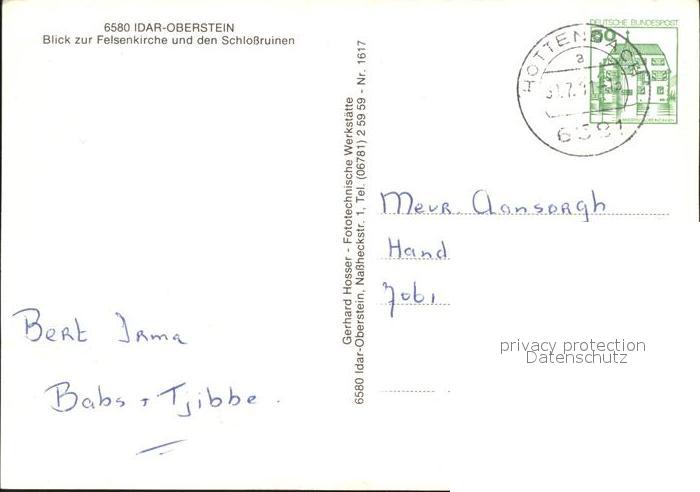 6580 IDAR-OBERSTEIN
Blick zur Felsenkirche und den Schloßruinen
DEUTSCHE BUNDESPOST
HOTTENBACH
a
6581
Gerhard Hosser - Fototechnische Werkstätte
6580 Idar-Oberstein, Naßheckstr. 1, Tel. (06781) 2 59 59 - Nr. 1617
Mevr. Aansorgh
Hand
Bert Irma
Babs + Tjibbe.
privacy protection
Datenschutz